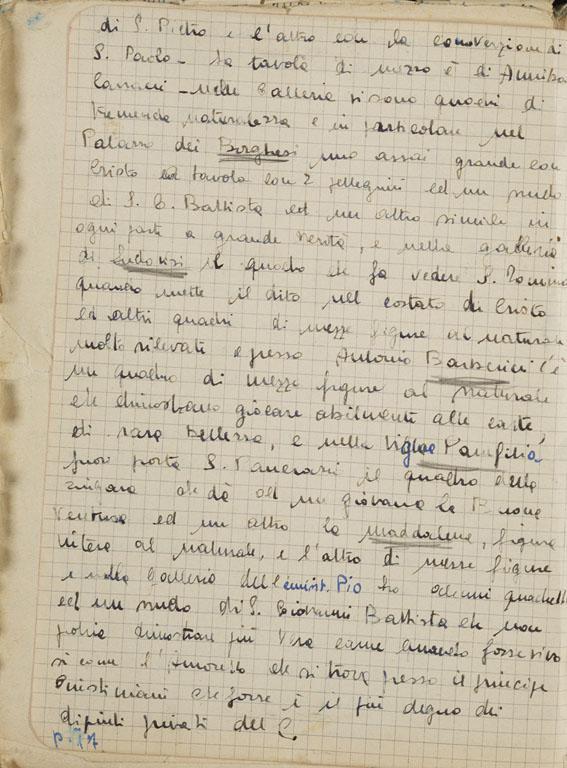 di S. Pietro e l'altro con la conversione di
S. Paolo - la tavola di mezzo è di Anniba
Carracci - nelle Gallerie si sono quadri di
tremenda naturalezza e in particolare nel
Palazzo dei Borghesi uno assai grande con
Cristo ed tavola con 2 pellegrini ed un nudo
di S. G. Battista ed un altro simile in
ogni parte a grande verità, e nella galleria
di Ludovisi il quadro che fa vedere S. Tommaso
quando mette il dito nel costato di Cristo
ed altri quadri di mezze figure al naturale
molto rilevati e presso Antonio Barberini c'è
un quadro di mezze figure al naturale
che dimostrano giocare abilmente alle carte,
di rara bellezza, e nella Vigna Panfilia
fuori porta S. Pancrazio il quadro della
zingara che dà ad un giovane la Buona
Ventura ed un altro la Maddalena, figura
intera al naturale, e l'altro di mezze figure
e nella Galleria dell'emist. Pio ho quadretti
ed un nudo di S. Giovanni Battista che non
potria dimostrare più vera carne quando fosse vivo
si come l'Amoretto che si trova presso il principe
Giustiniani che forse è il più degno dei
dipinti privati del C.
p. 17